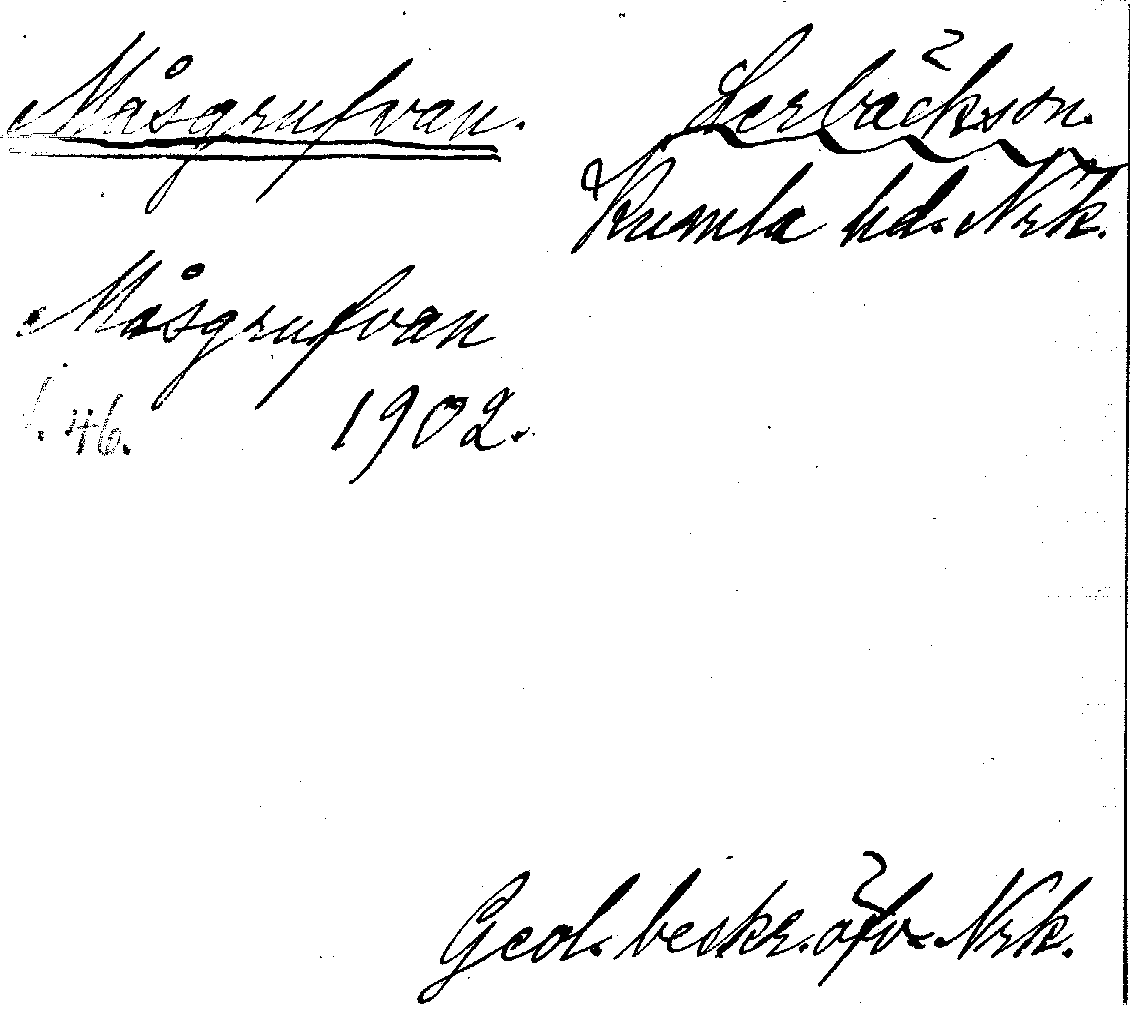 Måsgrufvan.
Lerbäckson.
Kumla hd. Nrk.
Måsgrufvan
s. 46. 1902.
Geol. beskr. öfv. Nrk.